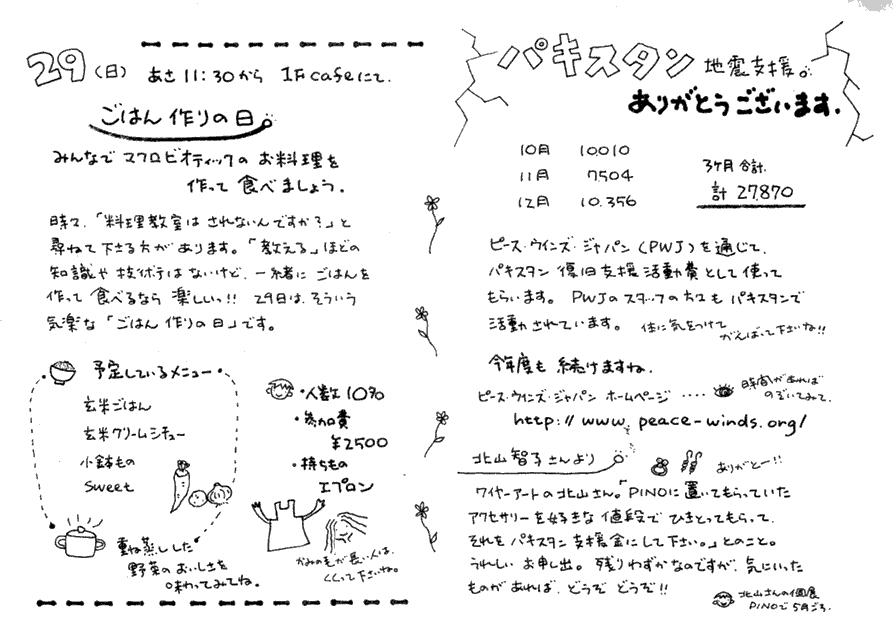 29(日) あさ11:30から 1F cafeにて.
ごはん作りの日
みんなで マクロビオティックの お料理を
作って 食べましょう.
時々、「料理教室は されないんですか?」と
尋ねて下さる方が あります。「教える」ほどの
知識や 技術では ないけど、一緒に ごはんを
作って 食べるなら 楽しいっ!! 29日は、そういう
気楽な「ごはん作りの日」です。
予定しているメニュー
玄米ごはん
玄米クリームシチュー
小鉢もの
Sweet
重ね蒸しした
野菜の おいしさを
味わってみてね。
・人数 10%
・参加費
¥2500
・持ちもの
エプロン
かみの毛が長い人は、
くくって下さいね。
パキスタン 地震支援。
ありがとうございます.
10月 10.010
11月 7504
12月 10.356
3ヶ月合計.
計 27,870
ピース・ウインズ・ジャパン(PWJ)を通じて、
パキスタン 復旧支援活動費として使って
もらいます。 PWJのスタッフの方々も パキスタンで
活動されています。 体に気をつけて
がんばって下さいね!!
今年度も 続けますね.
ピース・ウインズ・ジャパン ホームページ ････ 時間があれば
のぞいてみて.
http://www.peace-winds.org/
北山智子さんより
ありがとー!!
ワイヤーアートの北山さん。「PINOに置いてもらっていた
アクセサリーを好きな値段で ひきとってもらって、
それを パキスタン支援金にして下さい。」とのこと。
うれしい お申し出。残りわずかなのですが、気にいった
ものが あれば、どうぞ どうぞ!!
北山さんの個展
PINOで 5月ごろ.